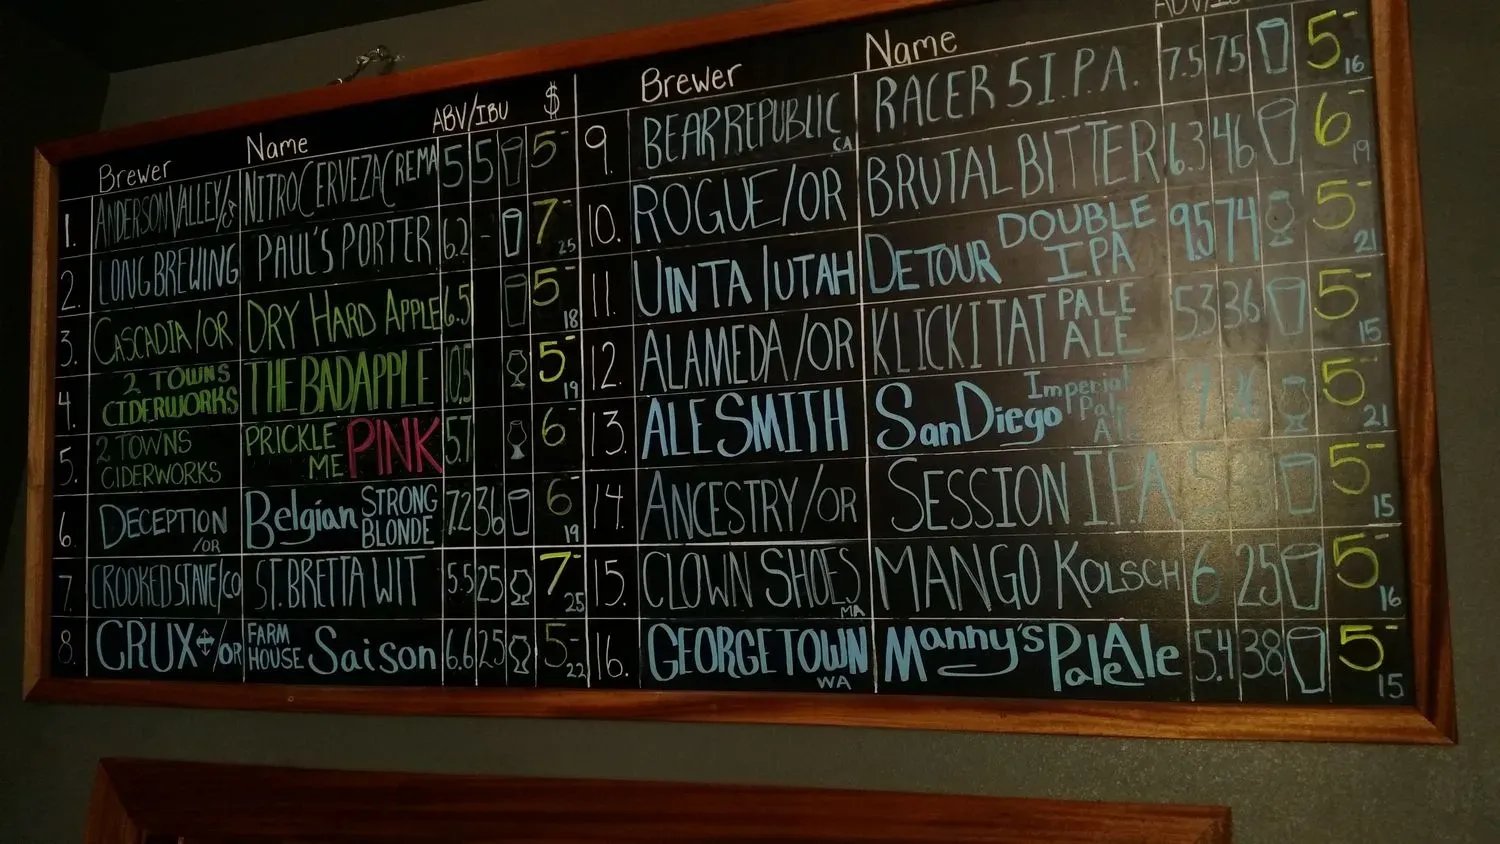 Brewer Name ABV/IBU $
1. ANDERSON VALLEY/CA NITRO CERVEZA CREMA 5 5 5-
2. LONG BREWING PAUL'S PORTER 6.2 - 7- 25
3. CASCADIA/OR DRY HARD APPLE 6.5 5- 18
4. 2 TOWNS CIDERWORKS THE BAD APPLE 10.5 5- 19
5. 2 TOWNS CIDERWORKS PRICKLE ME PINK 5.7 6-
6. DECEPTION /OR Belgian STRONG BLONDE 7.2 36 6- 19
7. CROOKED STAVE/CO ST. BRETTA WIT 5.5 25 7- 25
8. CRUX /OR FARM HOUSE Saison 6.6 25 5- 22
Brewer Name ABV/IBU
9. BEAR REPUBLIC CA RACER 5 I.P.A. 7.5 75 5- 16
10. ROGUE/OR BRUTAL BITTER 6.3 46 6- 19
11. UINTA/UTAH DETOUR DOUBLE IPA 9.5 74 5- 21
12. ALAMEDA/OR KLICKITAT PALE ALE 5.3 36 5- 15
13. ALE SMITH San Diego Imperial Pale Ale 5- 21
14. ANCESTRY/OR SESSION I.P.A 5- 15
15. CLOWN SHOES MA MANGO KOLSCH 6 25 5- 16
16. GEORGETOWN WA Manny's Pale Ale 5.4 38 5- 15